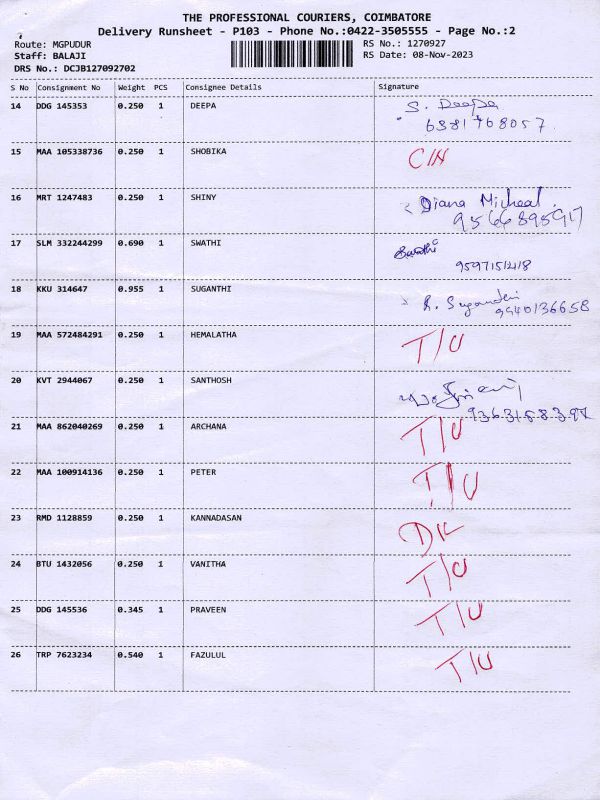 THE PROFESSIONAL COURIERS, COIMBATORE
Delivery Runsheet - P103 - Phone No.:0422-3505555 - Page No.:2
Route: MGPUDUR
RS No.: 1270927
Staff: BALAJI
RS Date: 08-Nov-2023
DRS No.: DCJB127092702
S No Consignment No Weight PCS Consignee Details Signature
14 DDG 145353 0.250 1 DEEPA S. Deepa
6381768057
15 MAA 105338736 0.250 1 SHOBIKA C/N
16 MRT 1247483 0.250 1 SHINY Diana Micheal
9566895917
17 SLM 332244299 0.690 1 SWATHI Swathi
18 KKU 314647 0.955 1 SUGANTHI
9940136658
19 MAA 572484291 0.250 1 HEMALATHA T/U
20 KVT 2944067 0.250 1 SANTHOSH
21 MAA 862040269 0.250 1 ARCHANA T/U
22 MAA 100914136 0.250 1 PETER T/U
23 RMD 1128859 0.250 1 KANNADASAN DK
24 BTU 1432056 0.250 1 VANITHA T/U
25 DDG 145536 0.345 1 PRAVEEN T/U
26 TRP 7623234 0.540 1 FAZULUL T/U